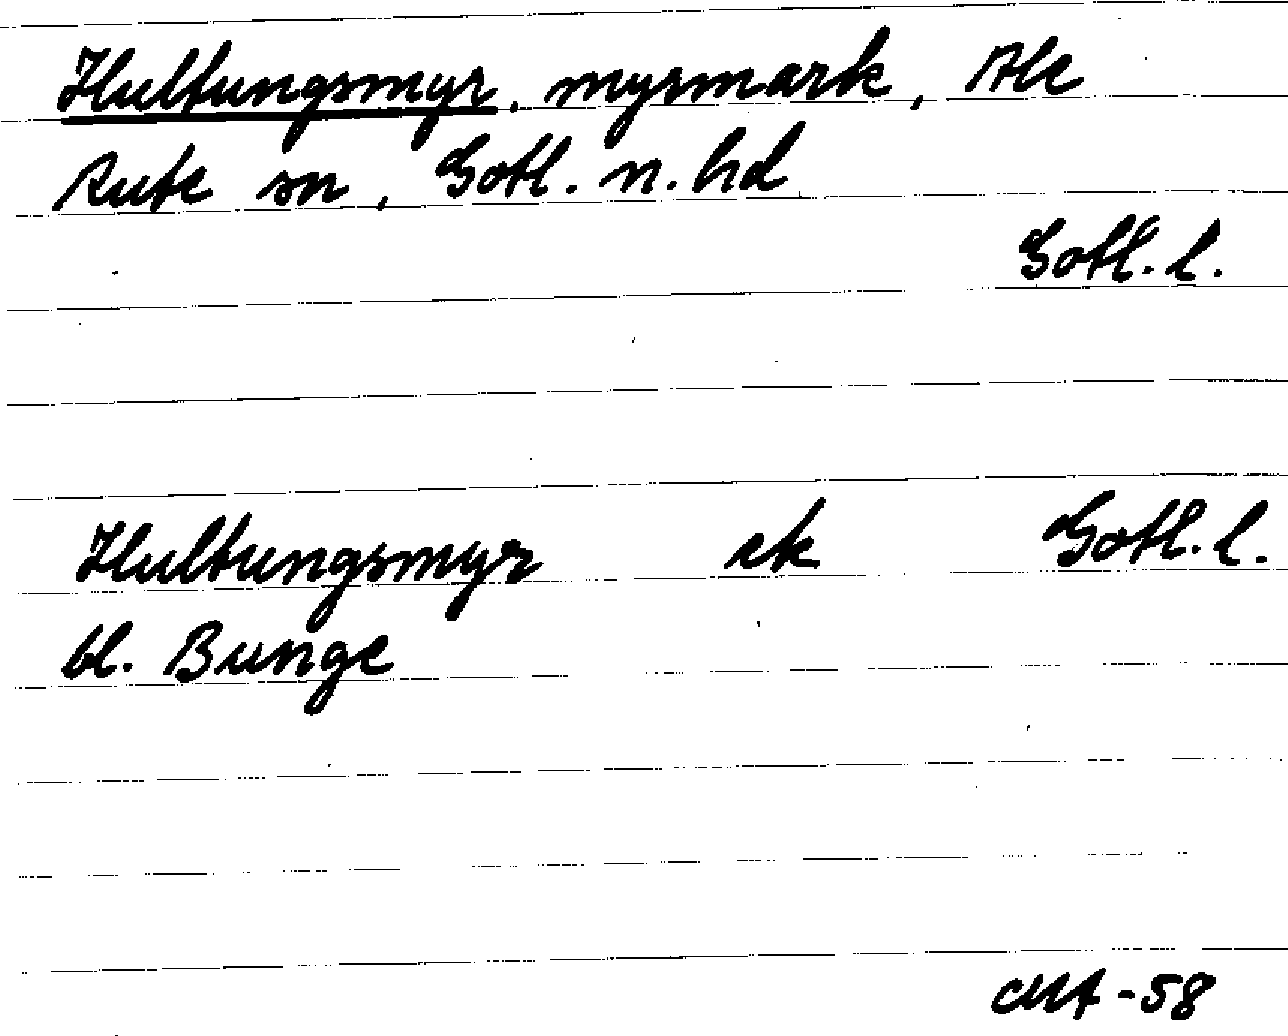 Hultungsmyr, myrmark, Ale
Rute sn, Gotl. n. hd
Gotl. l.
Hultungsmyr ek Gotl. l.
bl. Bunge
CMA -58